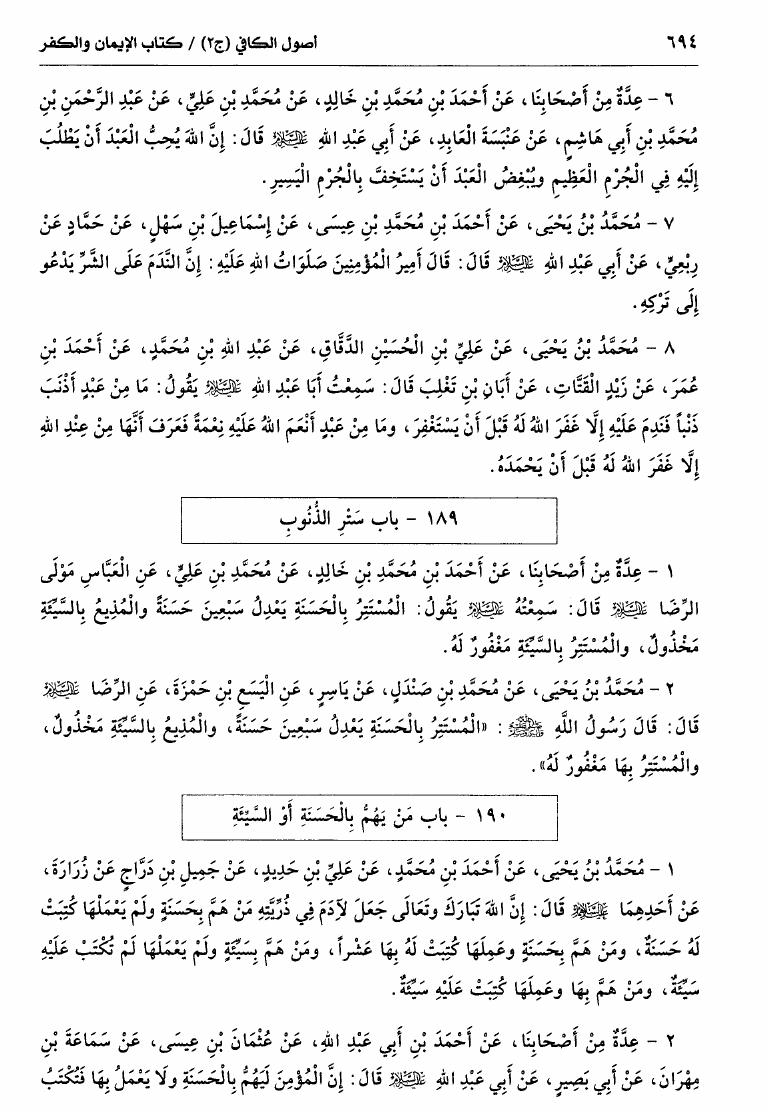 ٦٩٤ أصول الكافي (ج٢) / كتاب الإيمان والكفر
٦ - عِدَّةٌ مِنْ أَصْحَابِنَا، عَنْ أَحْمَدَ بْنِ مُحَمَّدِ بْنِ خَالِدٍ، عَنْ مُحَمَّدِ بْنِ عَلِيٍّ، عَنْ عَبْدِ الرَّحْمَنِ بْنِ
مُحَمَّدِ بْنِ أَبِي هَاشِمٍ، عَنْ عَنْبَسَةَ الْعَابِدِ، عَنْ أَبِي عَبْدِ اللهِ عَلَيْهِ السَّلَامُ قَالَ: إِنَّ اللهَ يُحِبُّ الْعَبْدَ أَنْ يَطْلُبَ
إِلَيْهِ فِي الْجُرْمِ الْعَظِيمِ ويُبْغِضُ الْعَبْدَ أَنْ يَسْتَخِفَّ بِالْجُرْمِ الْيَسِيرِ.
٧ - مُحَمَّدُ بْنُ يَحْيَى، عَنْ أَحْمَدَ بْنِ مُحَمَّدِ بْنِ عِيسَى، عَنْ إِسْمَاعِيلَ بْنِ سَهْلٍ، عَنْ حَمَّادٍ عَنْ
رِبْعِيٍّ، عَنْ أَبِي عَبْدِ اللهِ عَلَيْهِ السَّلَامُ قَالَ: قَالَ أَمِيرُ الْمُؤْمِنِينَ صَلَوَاتُ اللهِ عَلَيْهِ: إِنَّ النَّدَمَ عَلَى الشَّرِّ يَدْعُو
إِلَى تَرْكِهِ.
٨ - مُحَمَّدُ بْنُ يَحْيَى، عَنْ عَلِيِّ بْنِ الْحُسَيْنِ الدَّقَّاقِ، عَنْ عَبْدِ اللهِ بْنِ مُحَمَّدٍ، عَنْ أَحْمَدَ بْنِ
عُمَرَ، عَنْ زَيْدٍ الْقَتَّاتِ، عَنْ أَبَانِ بْنِ تَغْلِبَ قَالَ: سَمِعْتُ أَبَا عَبْدِ اللهِ عَلَيْهِ السَّلَامُ يَقُولُ: مَا مِنْ عَبْدٍ أَذْنَبَ
ذَنْباً فَنَدِمَ عَلَيْهِ إِلَّا غَفَرَ اللهُ لَهُ قَبْلَ أَنْ يَسْتَغْفِرَ، ومَا مِنْ عَبْدٍ أَنْعَمَ اللهُ عَلَيْهِ نِعْمَةً فَعَرَفَ أَنَّهَا مِنْ عِنْدِ اللهِ
إِلَّا غَفَرَ اللهُ لَهُ قَبْلَ أَنْ يَحْمَدَهُ.
١٨٩ - باب سَتْرِ الذُّنُوبِ
١ - عِدَّةٌ مِنْ أَصْحَابِنَا، عَنْ أَحْمَدَ بْنِ مُحَمَّدِ بْنِ خَالِدٍ، عَنْ مُحَمَّدِ بْنِ عَلِيٍّ، عَنِ الْعَبَّاسِ مَوْلَى
الرِّضَا عَلَيْهِ السَّلَامُ قَالَ: سَمِعْتُهُ عَلَيْهِ السَّلَامُ يَقُولُ: الْمُسْتَتِرُ بِالْحَسَنَةِ يَعْدِلُ سَبْعِينَ حَسَنَةً والْمُذِيعُ بِالسَّيِّئَةِ
مَخْذُولٌ، والْمُسْتَتِرُ بِالسَّيِّئَةِ مَغْفُورٌ لَهُ.
٢ - مُحَمَّدُ بْنُ يَحْيَى، عَنْ مُحَمَّدِ بْنِ صَنْدَلٍ، عَنْ يَاسِرٍ، عَنِ الْيَسَعِ بْنِ حَمْزَةَ، عَنِ الرِّضَا عَلَيْهِ السَّلَامُ
قَالَ: قَالَ رَسُولُ اللَّهِ ﷺ: «الْمُسْتَتِرُ بِالْحَسَنَةِ يَعْدِلُ سَبْعِينَ حَسَنَةً، والْمُذِيعُ بِالسَّيِّئَةِ مَخْذُولٌ،
والْمُسْتَتِرُ بِهَا مَغْفُورٌ لَهُ».
١٩٠ - باب مَنْ يَهُمُّ بِالْحَسَنَةِ أَوْ السَّيِّئَةِ
١ - مُحَمَّدُ بْنُ يَحْيَى، عَنْ أَحْمَدَ بْنِ مُحَمَّدٍ، عَنْ عَلِيِّ بْنِ حَدِيدٍ، عَنْ جَمِيلِ بْنِ دَرَّاجٍ عَنْ زُرَارَةَ،
عَنْ أَحَدِهِمَا عَلَيْهِمَا السَّلَامُ قَالَ: إِنَّ اللهَ تَبَارَكَ وتَعَالَى جَعَلَ لآِدَمَ فِي ذُرِّيَّتِهِ مَنْ هَمَّ بِحَسَنَةٍ ولَمْ يَعْمَلْهَا كُتِبَتْ
لَهُ حَسَنَةٌ، ومَنْ هَمَّ بِحَسَنَةٍ وعَمِلَهَا كُتِبَتْ لَهُ بِهَا عَشْراً، ومَنْ هَمَّ بِسَيِّئَةٍ ولَمْ يَعْمَلْهَا لَمْ تُكْتَبْ عَلَيْهِ
سَيِّئَةٌ، ومَنْ هَمَّ بِهَا وعَمِلَهَا كُتِبَتْ عَلَيْهِ سَيِّئَةٌ.
٢ - عِدَّةٌ مِنْ أَصْحَابِنَا، عَنْ أَحْمَدَ بْنِ أَبِي عَبْدِ اللهِ، عَنْ عُثْمَانَ بْنِ عِيسَى، عَنْ سَمَاعَةَ بْنِ
مِهْرَانَ، عَنْ أَبِي بَصِيرٍ، عَنْ أَبِي عَبْدِ اللهِ عَلَيْهِ السَّلَامُ قَالَ: إِنَّ الْمُؤْمِنَ لَيَهُمُّ بِالْحَسَنَةِ ولَا يَعْمَلُ بِهَا فَتُكْتَبُ